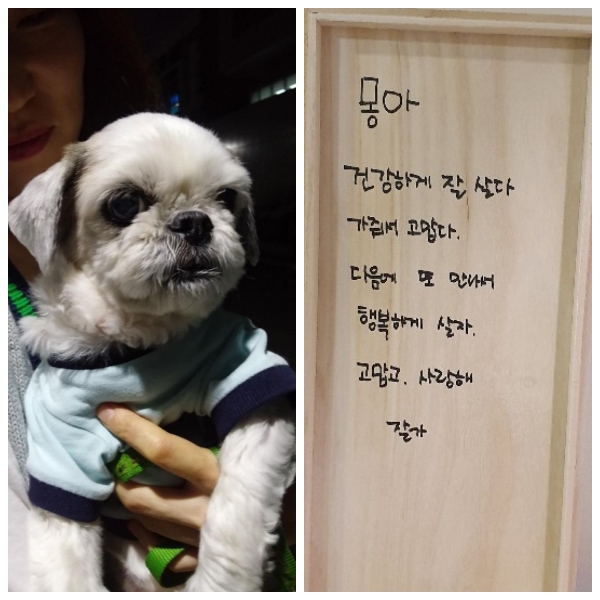 몽아
건강하게 잘 살다
가줘서 고맙다.
다음에 또 만나서
행복하게 살자.
고맙고, 사랑해
잘가